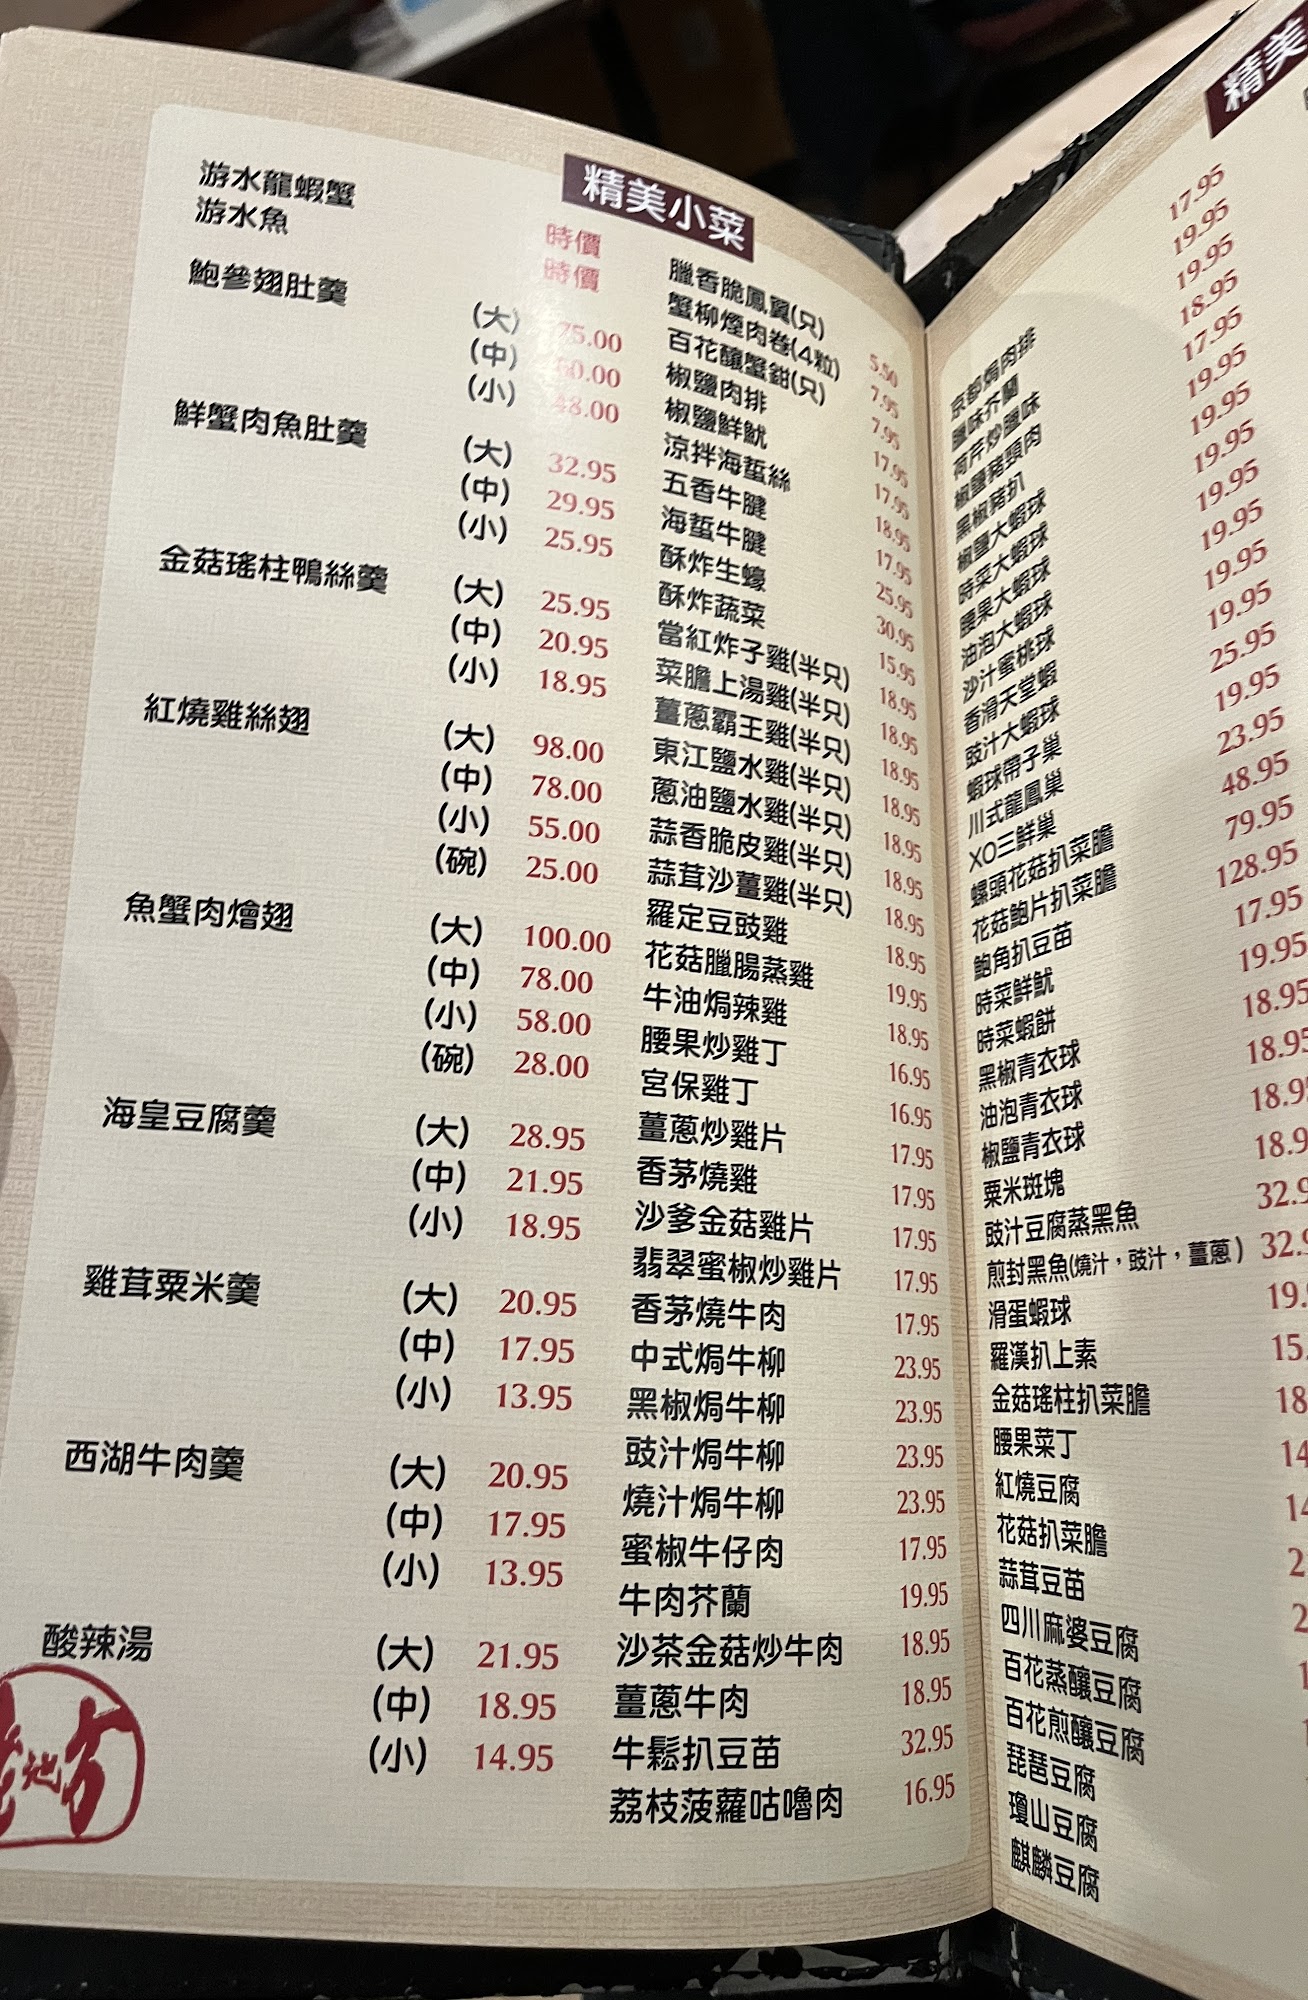 游水龍蝦蟹 時價
游水魚 時價
鮑參翅肚羹
(大) 75.00
(中) 60.00
(小) 48.00
鮮蟹肉魚肚羹
(大) 32.95
(中) 29.95
(小) 25.95
金菇瑤柱鴨絲羹
(大) 25.95
(中) 20.95
(小) 18.95
紅燒雞絲翅
(大) 98.00
(中) 78.00
(小) 55.00
(碗) 25.00
魚蟹肉燴翅
(大) 100.00
(中) 78.00
(小) 58.00
(碗) 28.00
海皇豆腐羹
(大) 28.95
(中) 21.95
(小) 18.95
雞茸粟米羹
(大) 20.95
(中) 17.95
(小) 13.95
西湖牛肉羹
(大) 20.95
(中) 17.95
(小) 13.95
酸辣湯
(大) 21.95
(中) 18.95
(小) 14.95
地方
精美小菜
臘香脆鳳翼(只) 5.50
蟹柳煙肉卷(4粒) 7.95
百花釀蟹鉗(只) 7.95
椒鹽肉排 17.95
椒鹽鮮魷 17.95
涼拌海蜇絲 18.95
五香牛腱 17.95
海蜇牛腱 25.95
酥炸生蠔 30.95
酥炸蔬菜 15.95
當紅炸子雞(半只) 18.95
菜膽上湯雞(半只) 18.95
薑蔥霸王雞(半只) 18.95
東江鹽水雞(半只) 18.95
蔥油鹽水雞(半只) 18.95
蒜香脆皮雞(半只) 18.95
蒜茸沙薑雞(半只) 18.95
羅定豆豉雞 18.95
花菇臘腸蒸雞 19.95
牛油焗辣雞 18.95
腰果炒雞丁 16.95
宮保雞丁 16.95
薑蔥炒雞片 17.95
香茅燒雞 17.95
沙爹金菇雞片 17.95
翡翠蜜椒炒雞片 17.95
香茅燒牛肉 17.95
中式焗牛柳 23.95
黑椒焗牛柳 23.95
豉汁焗牛柳 23.95
燒汁焗牛柳 23.95
蜜椒牛仔肉 17.95
牛肉芥蘭 19.95
沙茶金菇炒牛肉 18.95
薑蔥牛肉 18.95
牛鬆扒豆苗 32.95
荔枝菠蘿咕嚕肉 16.95
精美
京都焗肉排 17.95
臘味芥蘭 19.95
荷芹炒臘味 19.95
椒鹽豬頸肉 18.95
黑椒豬扒 17.95
椒鹽大蝦球 19.95
時菜大蝦球 19.95
腰果大蝦球 19.95
油泡大蝦球 19.95
沙汁蜜桃球 19.95
香滑天堂蝦 19.95
豉汁大蝦球 19.95
蝦球帶子巢 25.95
川式龍鳳巢 19.95
XO三鮮巢 23.95
螺頭花菇扒菜膽 48.95
花菇鮑片扒菜膽 79.95
鮑角扒豆苗 128.95
時菜鮮魷 17.95
時菜蝦餅 19.95
黑椒青衣球 18.95
油泡青衣球 18.95
椒鹽青衣球 18.95
粟米斑塊 18.9
豉汁豆腐蒸黑魚 32.9
煎封黑魚(燒汁，豉汁，薑蔥) 32.9
滑蛋蝦球 19.
羅漢扒上素 15.
金菇瑤柱扒菜膽 18
腰果菜丁 14
紅燒豆腐 14
花菇扒菜膽 2
蒜茸豆苗 2
四川麻婆豆腐
百花蒸釀豆腐
百花煎釀豆腐
琵琶豆腐
瓊山豆腐
麒麟豆腐